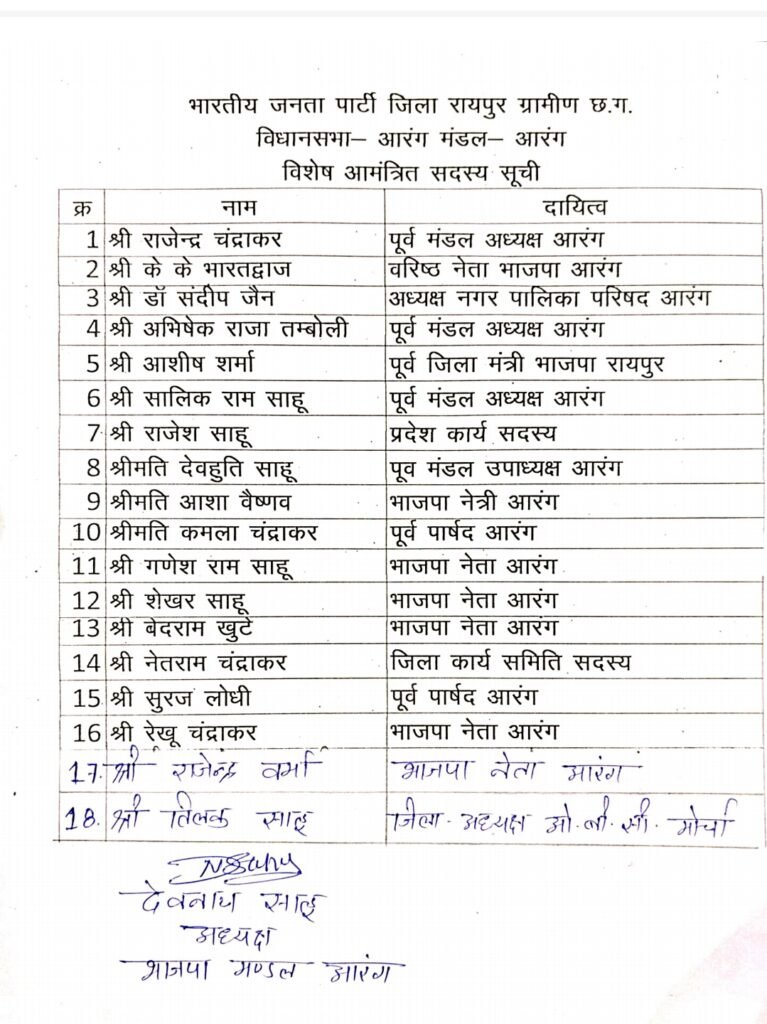 भारतीय जनता पार्टी जिला रायपुर ग्रामीण छ.ग.
विधानसभा– आरंग मंडल– आरंग
विशेष आमंत्रित सदस्य सूची
क्र नाम दायित्व
1 श्री राजेन्द्र चंद्राकर पूर्व मंडल अध्यक्ष आरंग
2 श्री के के भारतद्वाज वरिष्ठ नेता भाजपा आरंग
3 श्री डॉ संदीप जैन अध्यक्ष नगर पालिका परिषद आरंग
4 श्री अभिषेक राजा तम्बोली पूर्व मंडल अध्यक्ष आरंग
5 श्री आशीष शर्मा पूर्व जिला मंत्री भाजपा रायपुर
6 श्री सालिक राम साहू पूर्व मंडल अध्यक्ष आरंग
7 श्री राजेश साहू प्रदेश कार्य सदस्य
8 श्रीमति देवहुति साहू पूव मंडल उपाध्यक्ष आरंग
9 श्रीमति आशा वैष्णव भाजपा नेत्री आरंग
10 श्रीमति कमला चंद्राकर पूर्व पार्षद आरंग
11 श्री गणेश राम साहू भाजपा नेता आरंग
12 श्री शेखर साहू भाजपा नेता आरंग
13 श्री बेदराम खुटे भाजपा नेता आरंग
14 श्री नेतराम चंद्राकर जिला कार्य समिति सदस्य
15 श्री सुरज लोधी पूर्व पार्षद आरंग
16 श्री रेखू चंद्राकर भाजपा नेता आरंग
17. श्री राजेन्द्र वर्मा भाजपा नेता आरंग
18. श्री तिलक साहू जिला. अध्यक्ष ओ.बी.सी. मोर्चा
देवनाथ साहू
अध्यक्ष
भाजपा मण्डल आरंग